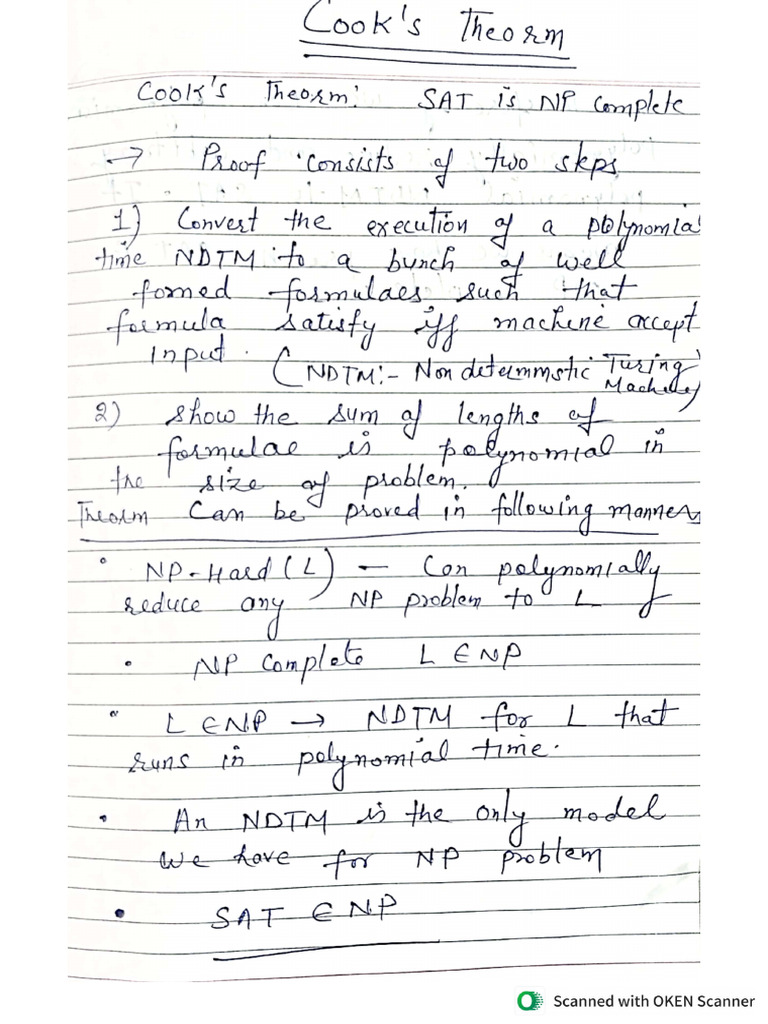 Cook's Theorm
Cook's Theorm: SAT is NP complete
→ Proof consists of two steps
1) Convert the execution of a polynomial
time NDTM to a bunch of well
fomed formulaes such that
formula satisfy iff machine accept
input. (NDTM:- Non determmstic Turing
Machine)
2) show the sum of lengths of
formulae is polynomial in
the size of problem.
Theorm Can be proved in following manner
• NP-Hard (L) - Can polynomially
reduce any NP problem to L
• NP Complete L ∈ NP
• L ∈ NP → NDTM for L that
runs in polynomial time.
• An NDTM is the only model
we have for NP problem
• SAT ∈ NP
Scanned with OKEN Scanner